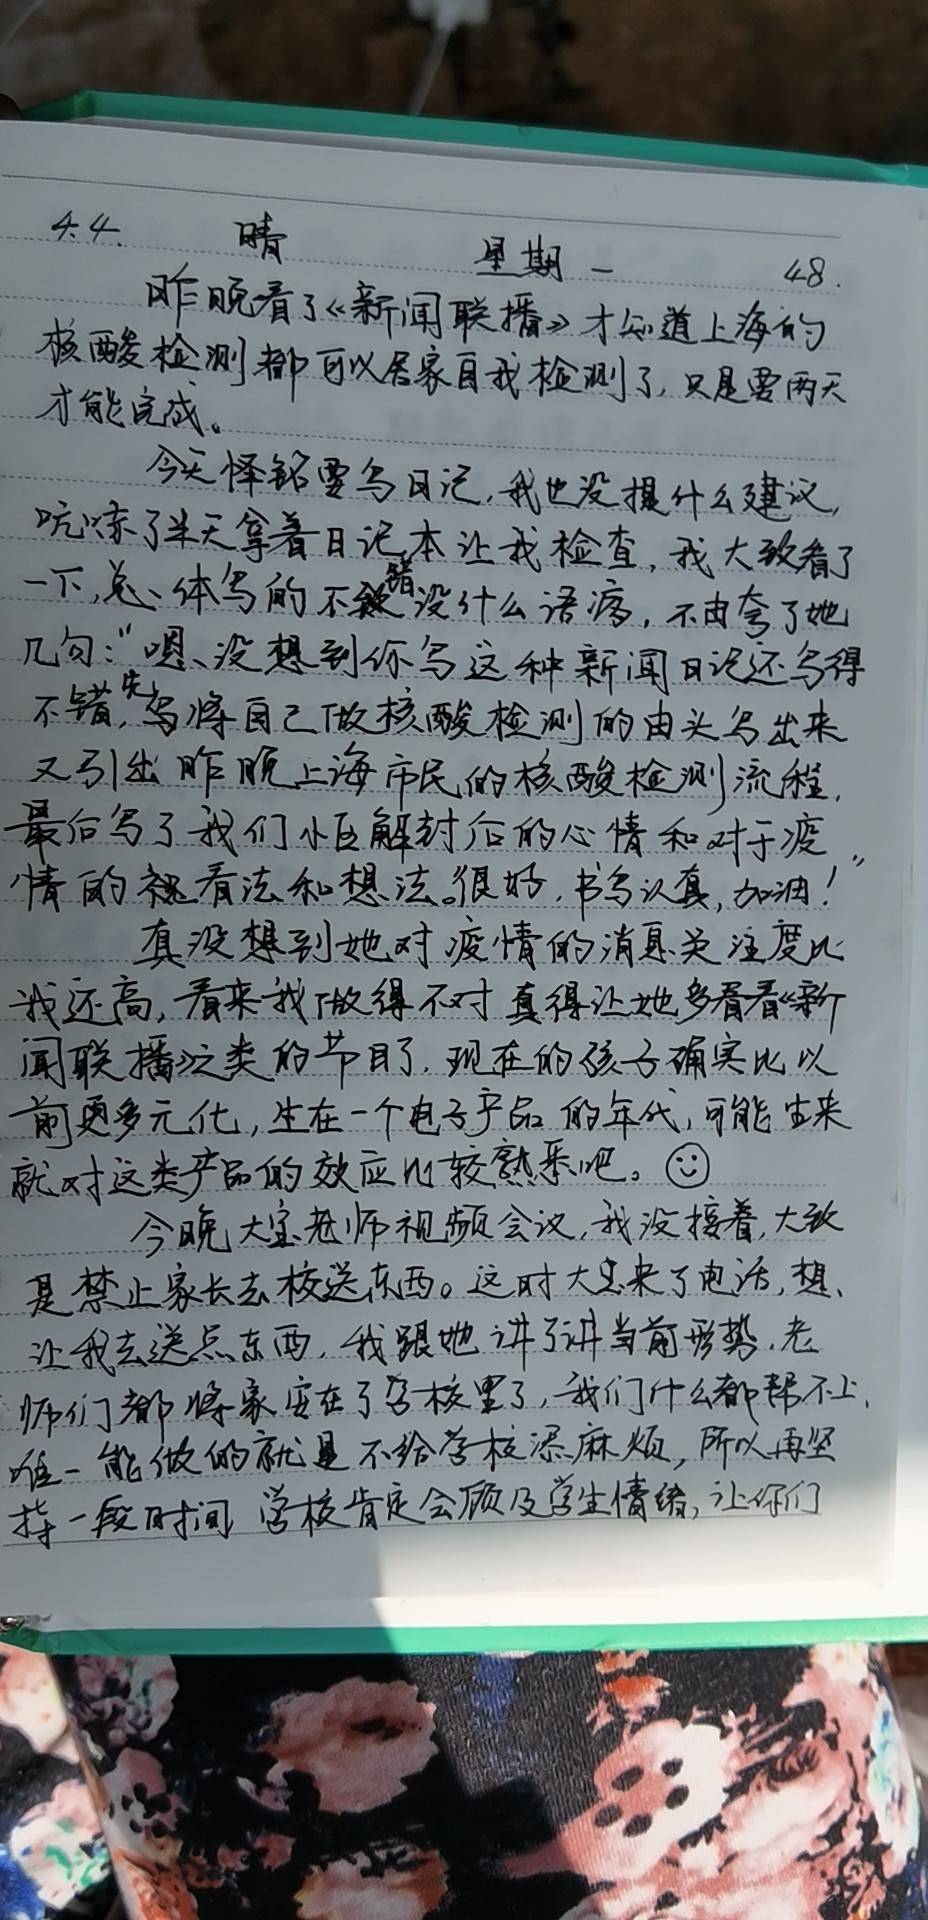 4.4. 晴 星期一 48.
昨晚看了《新闻联播》才知道上海的
核酸检测都可以居家自我检测了,只是要两天
才能完成。
今天怿铭要写日记,我也没提什么建议,
吭哧了半天拿着日记本让我检查,我大致看了
一下,总体写的不错没什么语病,不由夸了她
几句:“嗯、没想到你写这种新闻日记还写得
不错,先写将自己做核酸检测的由头写出来
又引出昨晚上海市民的核酸检测流程,
最后写了我们小区解封后的心情和对于疫
情的看法和想法。很好,书写认真,加油!”
真没想到她对疫情的消息关注度比
我还高,看来我做得不对真得让她多看看《新
闻联播》这类的节目了,现在的孩子确实比以
前更多元化,生在一个电子产品的年代,可能生来
就对这类产品的效应比较熟悉吧。
今晚大宝老师视频会议,我没接着,大致
是禁止家长去校送东西。这时大宝来了电话,想、
让我去送点东西,我跟她讲了讲当前形势,老
师们都将家安在了学校里了,我们什么都帮不上,
唯一能做的就是不给学校添麻烦,所以再坚
持一段时间,学校肯定会顾及学生情绪,让你们